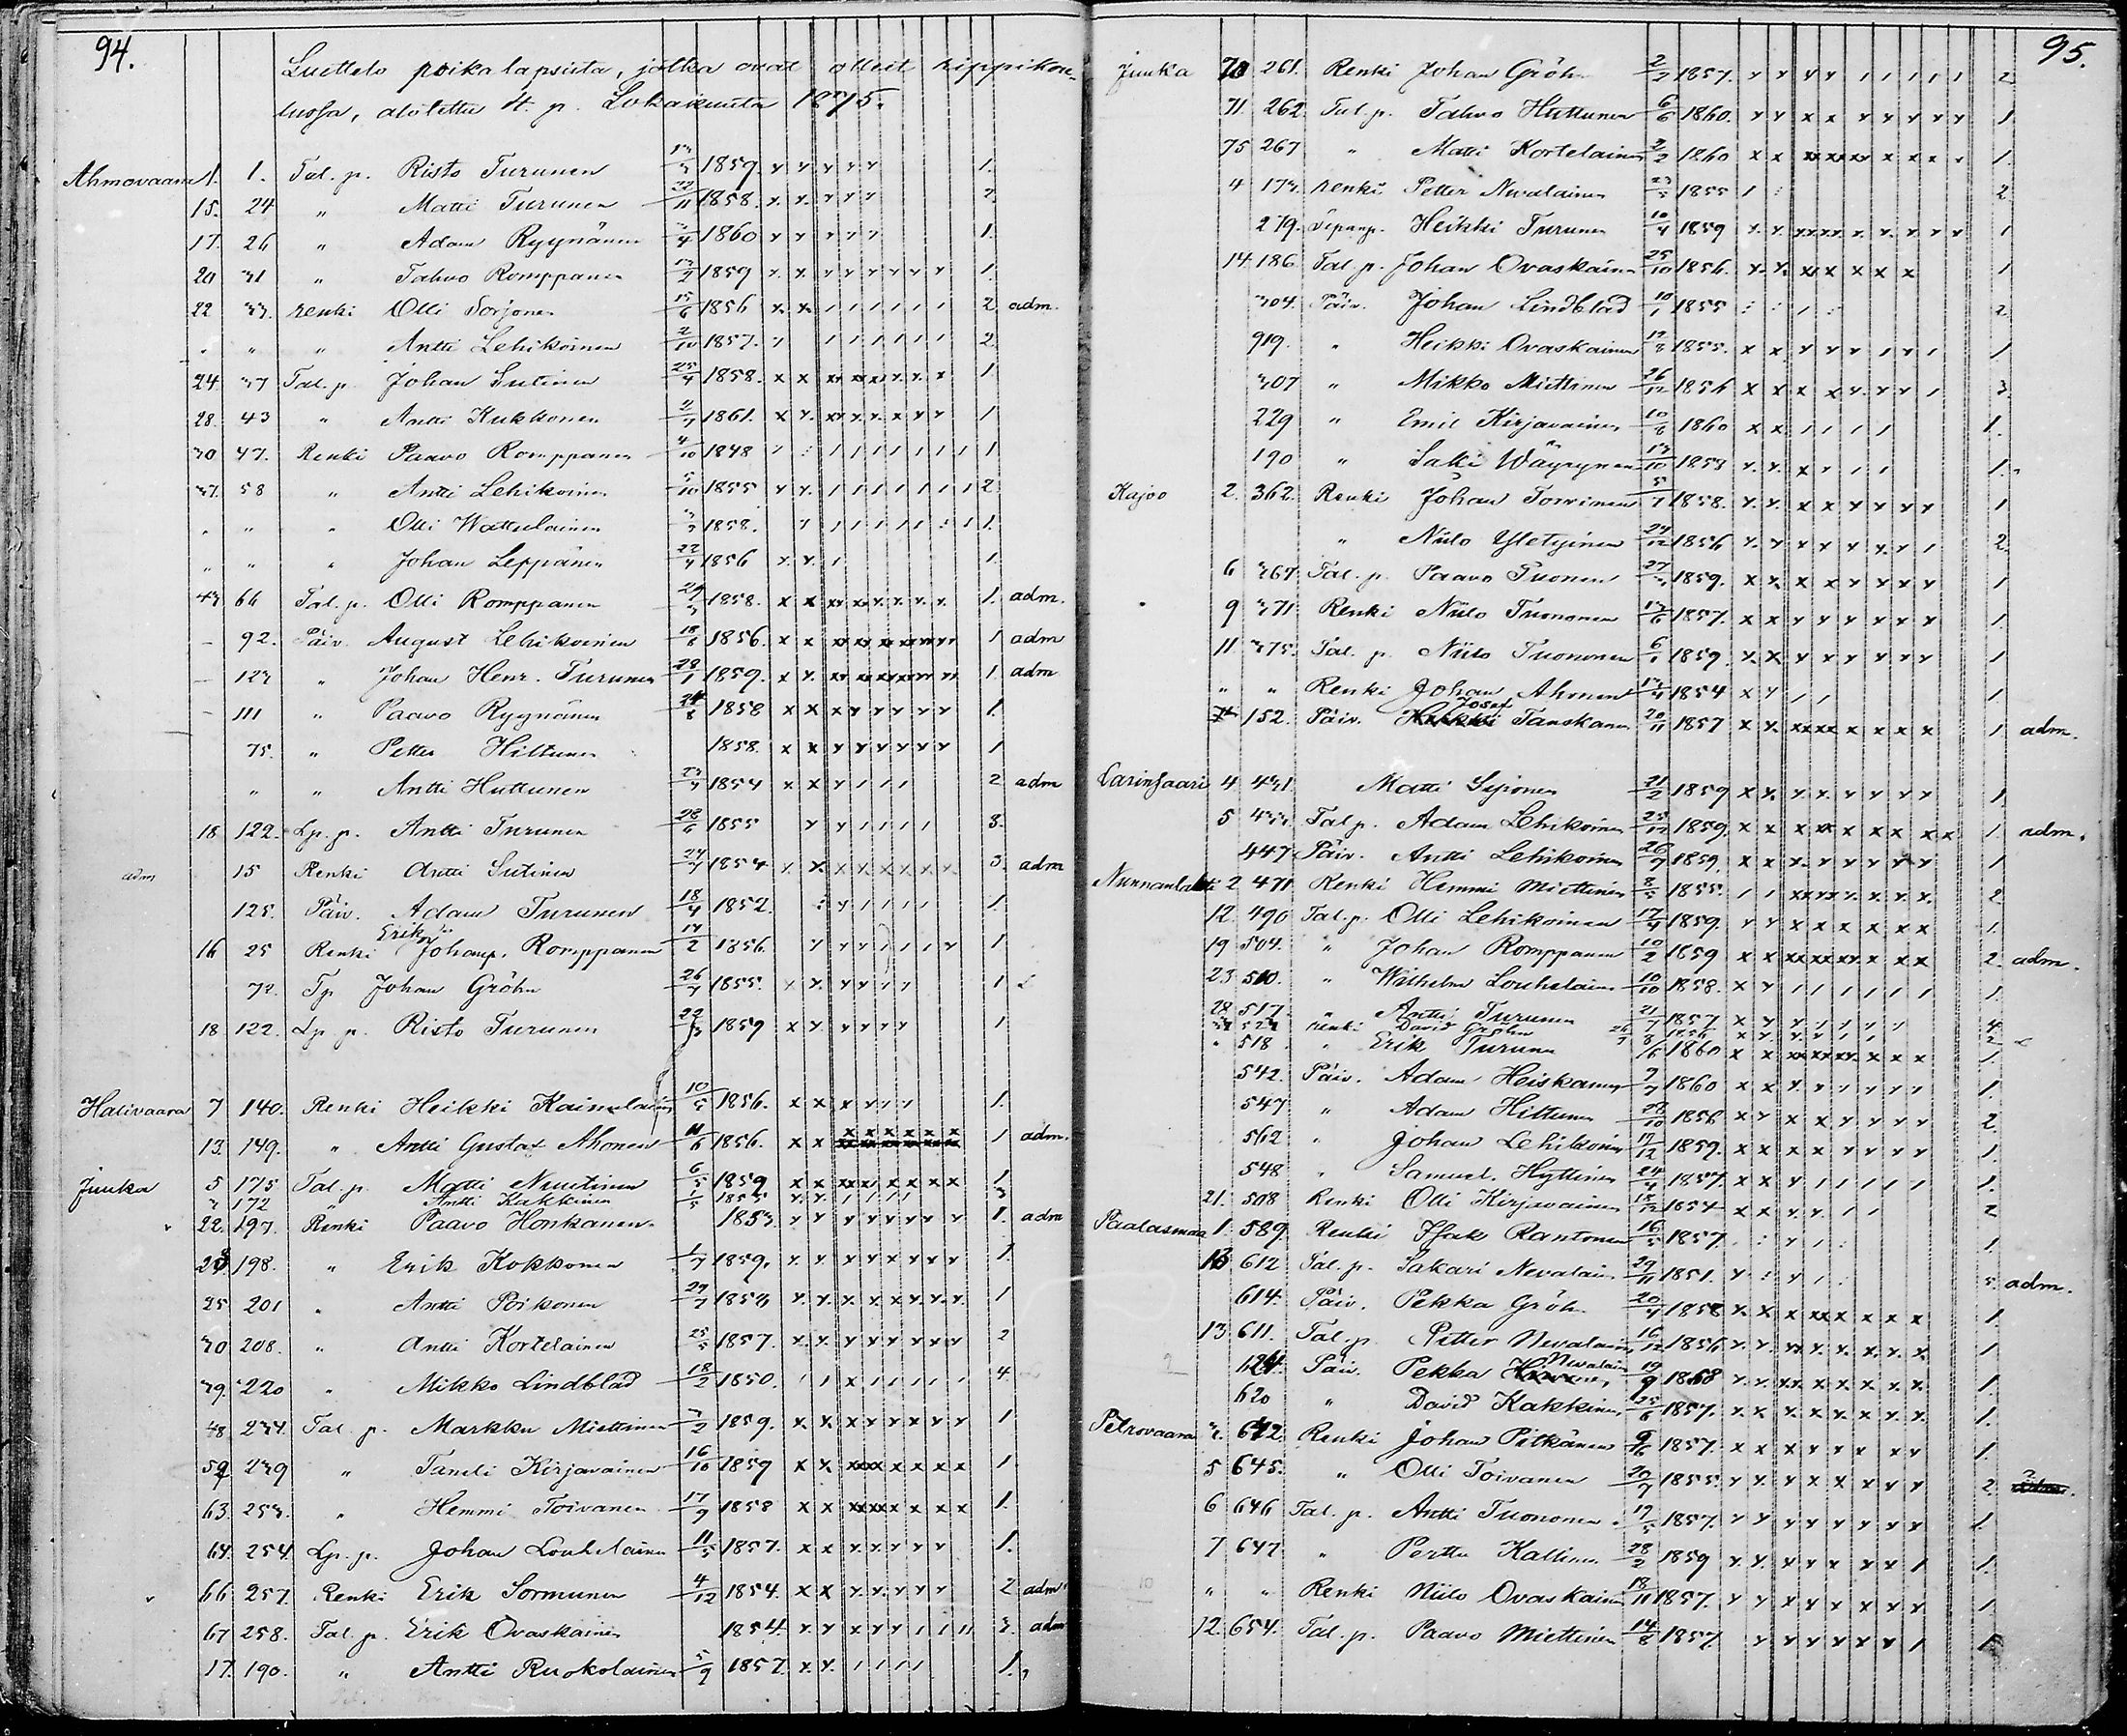 94.
Luettelo poikalapsista, jotka ovat olleet rippikou-
lussa, alotettu 4. p. Lokakuuta 1875.
Ahmovaara 1. 1. Tal. p. Risto Turunen 1859. 1.
15. 24 " Matti Turunen 22/11 1858. 2.
17. 26 " Adam Ryynänen 1860 1.
20 31 " Tahvo Romppanen 1859 1.
22 33. renki Olli Sorjonen 15/6 1856 2 adm.
" " " Antti Lehikoinen 2/10 1857. 2.
24 37 Tal. p. Johan Sutinen 25/4 1858. 1
28. 43 " Antti Kukkonen 1861. 1
30 47. Renki Paavo Romppanen 4/10 1848 1.
37. 58 " Antti Lehikoinen 5/10 1855 2.
" " " Olli Wattulainen 1858. 1.
" " " Johan Leppänen 1856 1.
43 66 Tal. p. Olli Romppanen 1858. 1. adm.
– 92. Päiv. August Lehikoinen 18/6 1856. 1 adm
– 123 " Johan Henr. Turunen 28/1 1859. 1. adm
– 111 " Paavo Ryynänen 24/8 1858 1.
75. " Petter Hiltunen 1858. 1
" " Antti Huttunen 1854 2 adm
18. 122. Lp. p. Antti Turunen 28/6 1855 3.
adm 15 Renki Antti Sutinen 1854 3. adm
125. Päiv. Adam Turunen 18/4 1852. 1.
16 25 Renki Erik Johanp. Romppanen 1856. 1
72. Tp Johan Gröhn 26/7 1855. 1
18 122. Lp. p. Risto Turunen 1859 1
Halivaara 7 140. Renki Heikki Kainulainen 10/5 1856. 1.
13. 149. " Antti Gustaf Ahonen 11/6 1856. 1 adm.
Juuka 5 175 Tal. p. Matti Nuutinen 6/5 1859 1
172 " Antti Kakkinen 3
22. 197. Renki Paavo Honkanen 1853. 1. adm
23. 198. " Erik Kokkonen 1/7 1859. 1.
25 201 " Antti Poikonen 1858 1
30 208. " Antti Kortelainen 25/5 1857. 2
39. 220 " Mikko Lindblad 18/2 1850. 4
48 234. Tal. p. Markku Miettinen 3/2 1859. 1
59 239 " Taneli Kirjavainen 16/10 1859 1
63. 253. " Hemmi Toivanen 17/9 1858 1.
64. 254. Lp. p. Johan Louhelainen 11/5 1857. 1.
66 257. Renki Erik Sormunen 4/12 1854. 2 adm.
67 258. Tal. p. Erik Ovaskainen 1854. 3. adm
17. 190. " Antti Ruokolainen 5/9 1857. 1.
95.
Juuka 70 261. Renki Johan Gröhn 1857. 2
71. 262. Tal. p. Tahvo Huttunen 6/6 1860. 1
75 267 " Matti Kortelainen 2/2 1860 1.
4 173. renki Petter Nevalainen 23/5 1855 2
279. Heikki Turunen 10/4 1859 1
14. 186 Tal. p. Johan Ovaskainen 25/10 1856. 1
304. Päiv. Johan Lindblad 10/1 1855 2
919. " Heikki Ovaskainen 1855. 1
307 " Mikko Miettinen 26/12 1856 3.
229 " Emil Kirjavainen 10/6 1860 1.
190 " Saki Wäyrynen 13/10 1858 1.
Kajoo 2. 362. Renki Johan Torvinen 5/7 1858. 1
" Niilo Yletyinen 24/12 1856 2.
6 367. Tal. p. Paavo Tuonen 1859. 1
9 371. Renki Niilo Tuononen 13/6 1857. 1.
11. 375. Tal. p. Niilo Tuononen 1859. 1
" " Renki Johan Ahonen 1854 1
152. Päiv. Josef Tanskanen 20/11 1857 1 adm.
Larinsaari 4 431. Matti Sijonen 21/2 1859 1.
5 433. Tal p. Adam Lehikoinen 25/12 1859. 1. adm.
447 Päiv. Antti Lehikoinen 1859. 1
Nunnanlahti 2 471 Renki Hemmi Miettinen 8/5 1855. 2.
12. 490 Tal. p. Olli Lehikoinen 17/4 1859. 1.
19 504. " Johan Romppanen 10/2 1859 2. adm.
23. 510. " Wilhelm Louhelainen 10/10 1858. 1.
28. 517. " Antti Turunen 21/7 1857 4
renki David Gröhn 2
" 518 " Erik Turunen 1860 1.
542. Päiv. Adam Heiskanen 1860 1.
547 " Adam Hiltunen 28/10 1856 2.
562 " Johan Lehikoinen 17/12 1859. 1.
548 " Samuel Hyttinen 24/4 1857. 1.
21. 508 Renki Olli Kirjavainen 1854 2
Paalasmaa 1. 589. Renki Isak Rantonen 16/5 1857. 1.
13 612 Tal. p. Sakari Nevalainen 29/11 1851. 5. adm.
614. Päiv. Pekka Gröhn 1858 1.
13. 611. Tal. p. Petter Nevalainen 16/12 1856 1
624. Päiv. Pekka Nevalainen 1868 1.
620 " David Kakkinen 25/6 1857. 1.
Petrovaara 3. 642. Renki Johan Pitkänen 1857. 1.
5 645. " Olli Toivanen 20/7 1855. 2.
6 646 Tal. p. Antti Tuononen 17/5 1857. 1.
7 647 " Perttu Kallinen 28/2 1859 1.
" " Renki Niilo Ovaskainen 18/11 1857. 1.
12. 654. Tal. p. Paavo Miettinen 14/8 1857 1